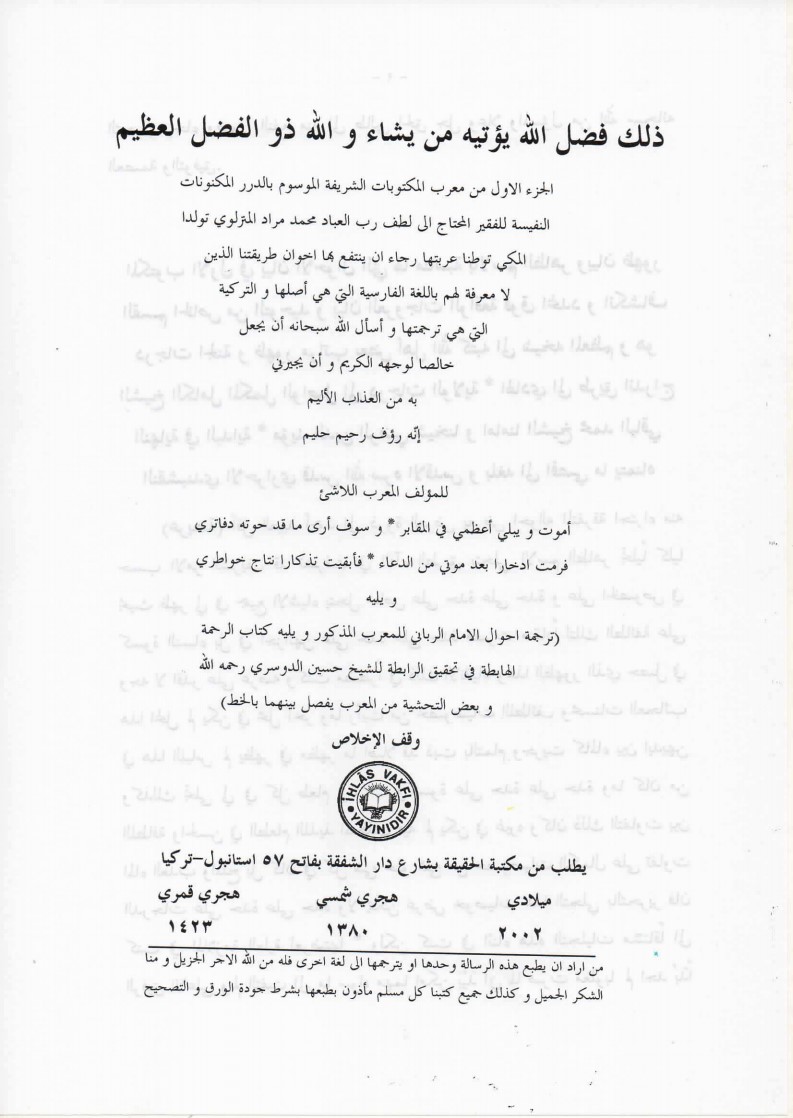 ذلك فضل الله يؤتيه من يشاء و الله ذو الفضل العظيم
الجزء الاول من معرب المكتوبات الشريفة الموسوم بالدرر المكنونات
النفيسة للفقير المحتاج الى لطف رب العباد محمد مراد المنزلوي تولدا
المكي توطنا عربتها رجاء ان ينتفع بها اخوان طريقتنا الذين
لا معرفة لهم باللغة الفارسية التي هي أصلها و التركية
التي هي ترجمتها و أسأل الله سبحانه أن يجعل
خالصا لوجهه الكريم و أن يجيرني
به من العذاب الأليم
إنّه رؤف رحيم حليم
للمؤلف المعرب اللاشئ
أموت و يبلي أعظمي في المقابر * و سوف أرى ما قد حوته دفاتري
فرمت ادخارا بعد موتي من الدعاء * فأبقيت تذكارا نتاج خواطري
و يليه
(ترجمة احوال الامام الرباني للمعرب المذكور و يليه كتاب الرحمة
الهابطة في تحقيق الرابطة للشيخ حسين الدوسري رحمه الله
و بعض التحشية من المعرب يفصل بينهما بالخط)
وقف الإخلاص
İHLÂS VAKFI
YAYINIDIR
يطلب من مكتبة الحقيقة بشارع دار الشفقة بفاتح ٥٧ استانبول-تركيا
ميلادي هجري شمسي هجري قمري
٢٠٠٢ ١٣٨٠ ١٤٢٣
من اراد ان يطبع هذه الرسالة وحدها او يترجمها الى لغة اخرى فله من الله الاجر الجزيل و منا
الشكر الجميل و كذلك جميع كتبنا كل مسلم مأذون بطبعها بشرط جودة الورق و التصحيح